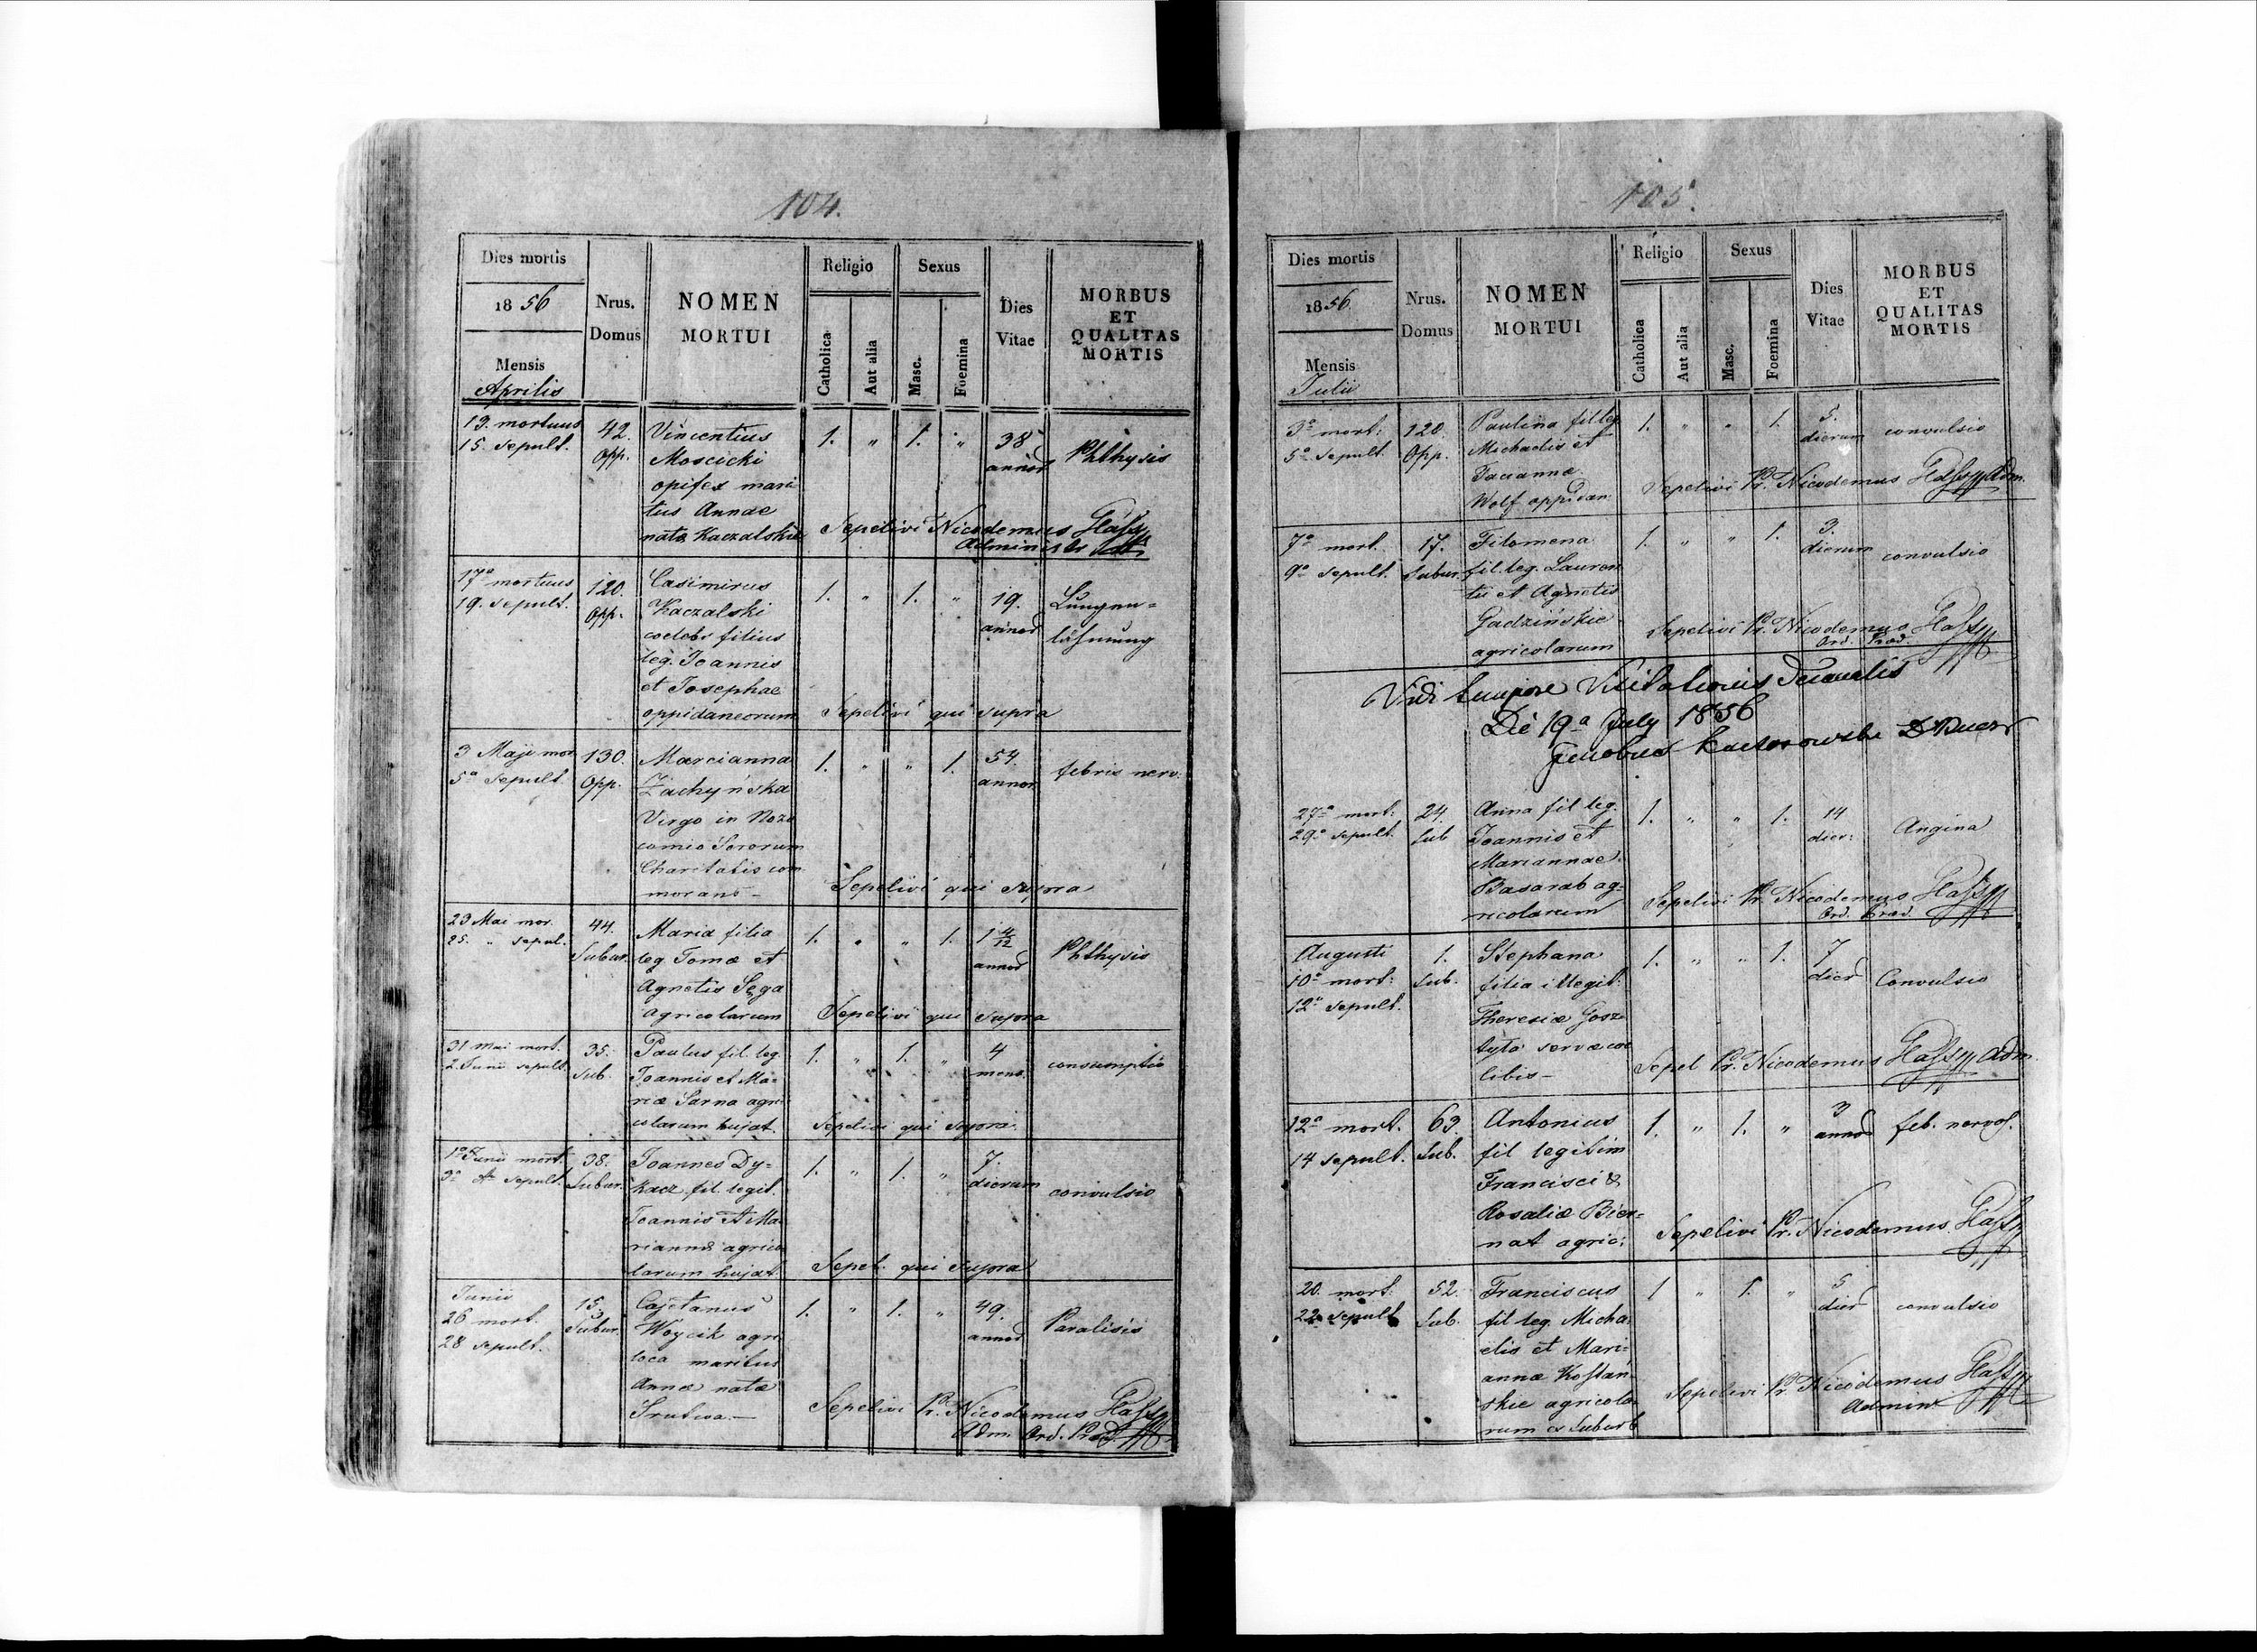 104.
Dies mortis
1856
Mensis
Aprilis
Nrus.
Domus
NOMEN
MORTUI
Religio
Catholica
Aut alia
Sexus
Masc.
Foemina
Dies
Vitae
MORBUS
ET
QUALITAS
MORTIS
13. mortuus
15. Sepult.
42.
Opp.
Vincentius
Moscicki
opifex mari
tus Annae
nata Kaczalskie
1. " 1. "
38
annor
Phthysis
Sepelivi Nicodemus
Administr
17a mortuus
19. Sepult.
120.
Opp.
Casimirus
Kaczalski
coelebs filius
leg. Joannis
et Josephae
oppidaneorum
1. " 1. "
19.
annor
Lungen=
lähmung
Sepelivi qui supra
3 Maji mor
5a Sepult.
130.
Opp.
Marcianna
Zachyńska
Virgo in Nozo
comio Sororum
Charitatis com
morans -
1. " " 1.
54.
annor
febris nerv.
Sepelivi qui supra
23 Mai mor.
25. " sepul.
44.
Subur.
Maria filia
leg Tomæ et
Agnetis Sęga
Agricolarum
1. " " 1.
1 4/12
annor
Phthysis
Sepelivi qui supra
31 Mai mort.
2. Junii sepult.
35.
Sub.
Paulus fil. leg.
Joannis et Ma=
riæ Sarna agri
colarum hujat.
1. " 1. "
4
mens.
consumptio
Sepelivi qui supra.
1a Junii mort.
3a sepult.
38.
Subur.
Joannes Dy=
kacz fil. legit.
Joannis et Ma
riannæ agrico
larum hujat.
1. " 1. "
7.
dierum
convulsio
Sepel. qui supra
Junii
26 mort.
28 sepult.
15.
Subur.
Cajetanus
Woycik agri
cola maritus
Annæ natæ
1. " 1. "
49.
annor
Paralisis
Sepelivi Pr. Nicodemus
Adm. Ord. Præd.
105.
Dies mortis
1856.
Mensis
Julii
Nrus.
Domus
NOMEN
MORTUI
Religio
Catholica
Aut alia
Sexus
Masc.
Foemina
Dies
Vitae
MORBUS
ET
QUALITAS
MORTIS
3a mort:
5a Sepult.
120.
Opp.
Paulina fil leg
Michaelis et
Wolf oppidan
1. " " 1.
5.
dierum
convulsio
Sepelivi Pr. Nicodemus Adm.
7a mort.
9a sepult.
17.
Subur.
Filomena
fil. leg. Lauren
tii et Agnetis
Gadzińskie
agricolarum
1. " " 1.
3.
dierum
convulsio
Sepelivi Pr. Nicodemus
Ord. Præd.
Vidi tempore Visitationis Decanalis
Die 19a July 1856
27a mort:
29a sepult.
24.
Sub
Anna fil leg.
Joannis et
Mariannae
Basarab ag=
ricolarum
1. " " 1.
14
dier:
Angina
Sepelivi Pr. Nicodemus
Ord. Præd.
Augusti
10a mort:
12a sepult.
1.
Sub.
Stephana
filia illegit:
Theresiæ Gosz
tyło servæ cæ
libis -
1. " " 1.
7
dier
Convulsio
Sepel Pr. Nicodemus Adm.
12a mort.
14 sepult.
63.
Sub.
Antonius
fil legitim
Francisci &
Rosaliæ Bier=
nat agric:
1. " 1. "
3
annor
feb. nervos.
Sepelivi Pr. Nicodemus
20. mort.
22a sepult
52.
Sub.
Franciscus
fil leg. Micha
elis et Mari=
annæ Kostań
skie agricola
rum ex Suburb
1 " 1. "
5
dier
convulsio
Sepelivi Pr. Nicodemus
Admin.